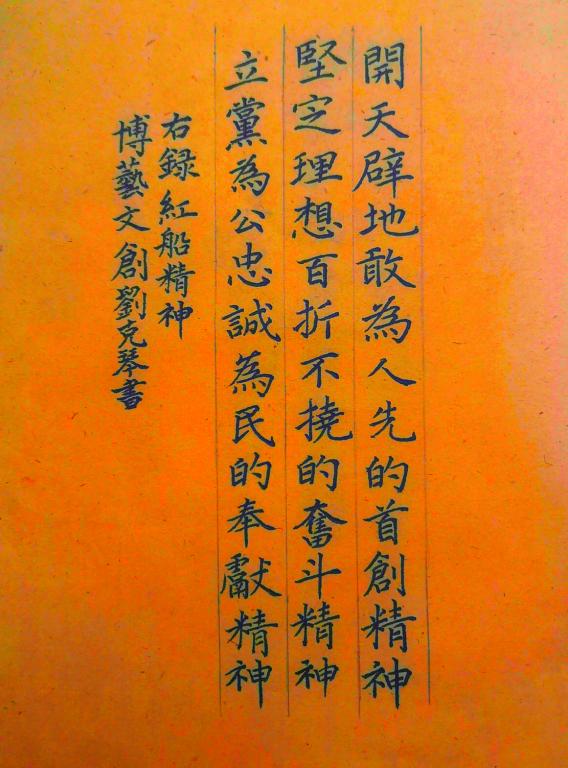 開天辟地敢為人先的首創精神
堅定理想百折不撓的奮斗精神
立黨為公忠誠為民的奉獻精神
右録紅船精神
博藝文創劉克琴書